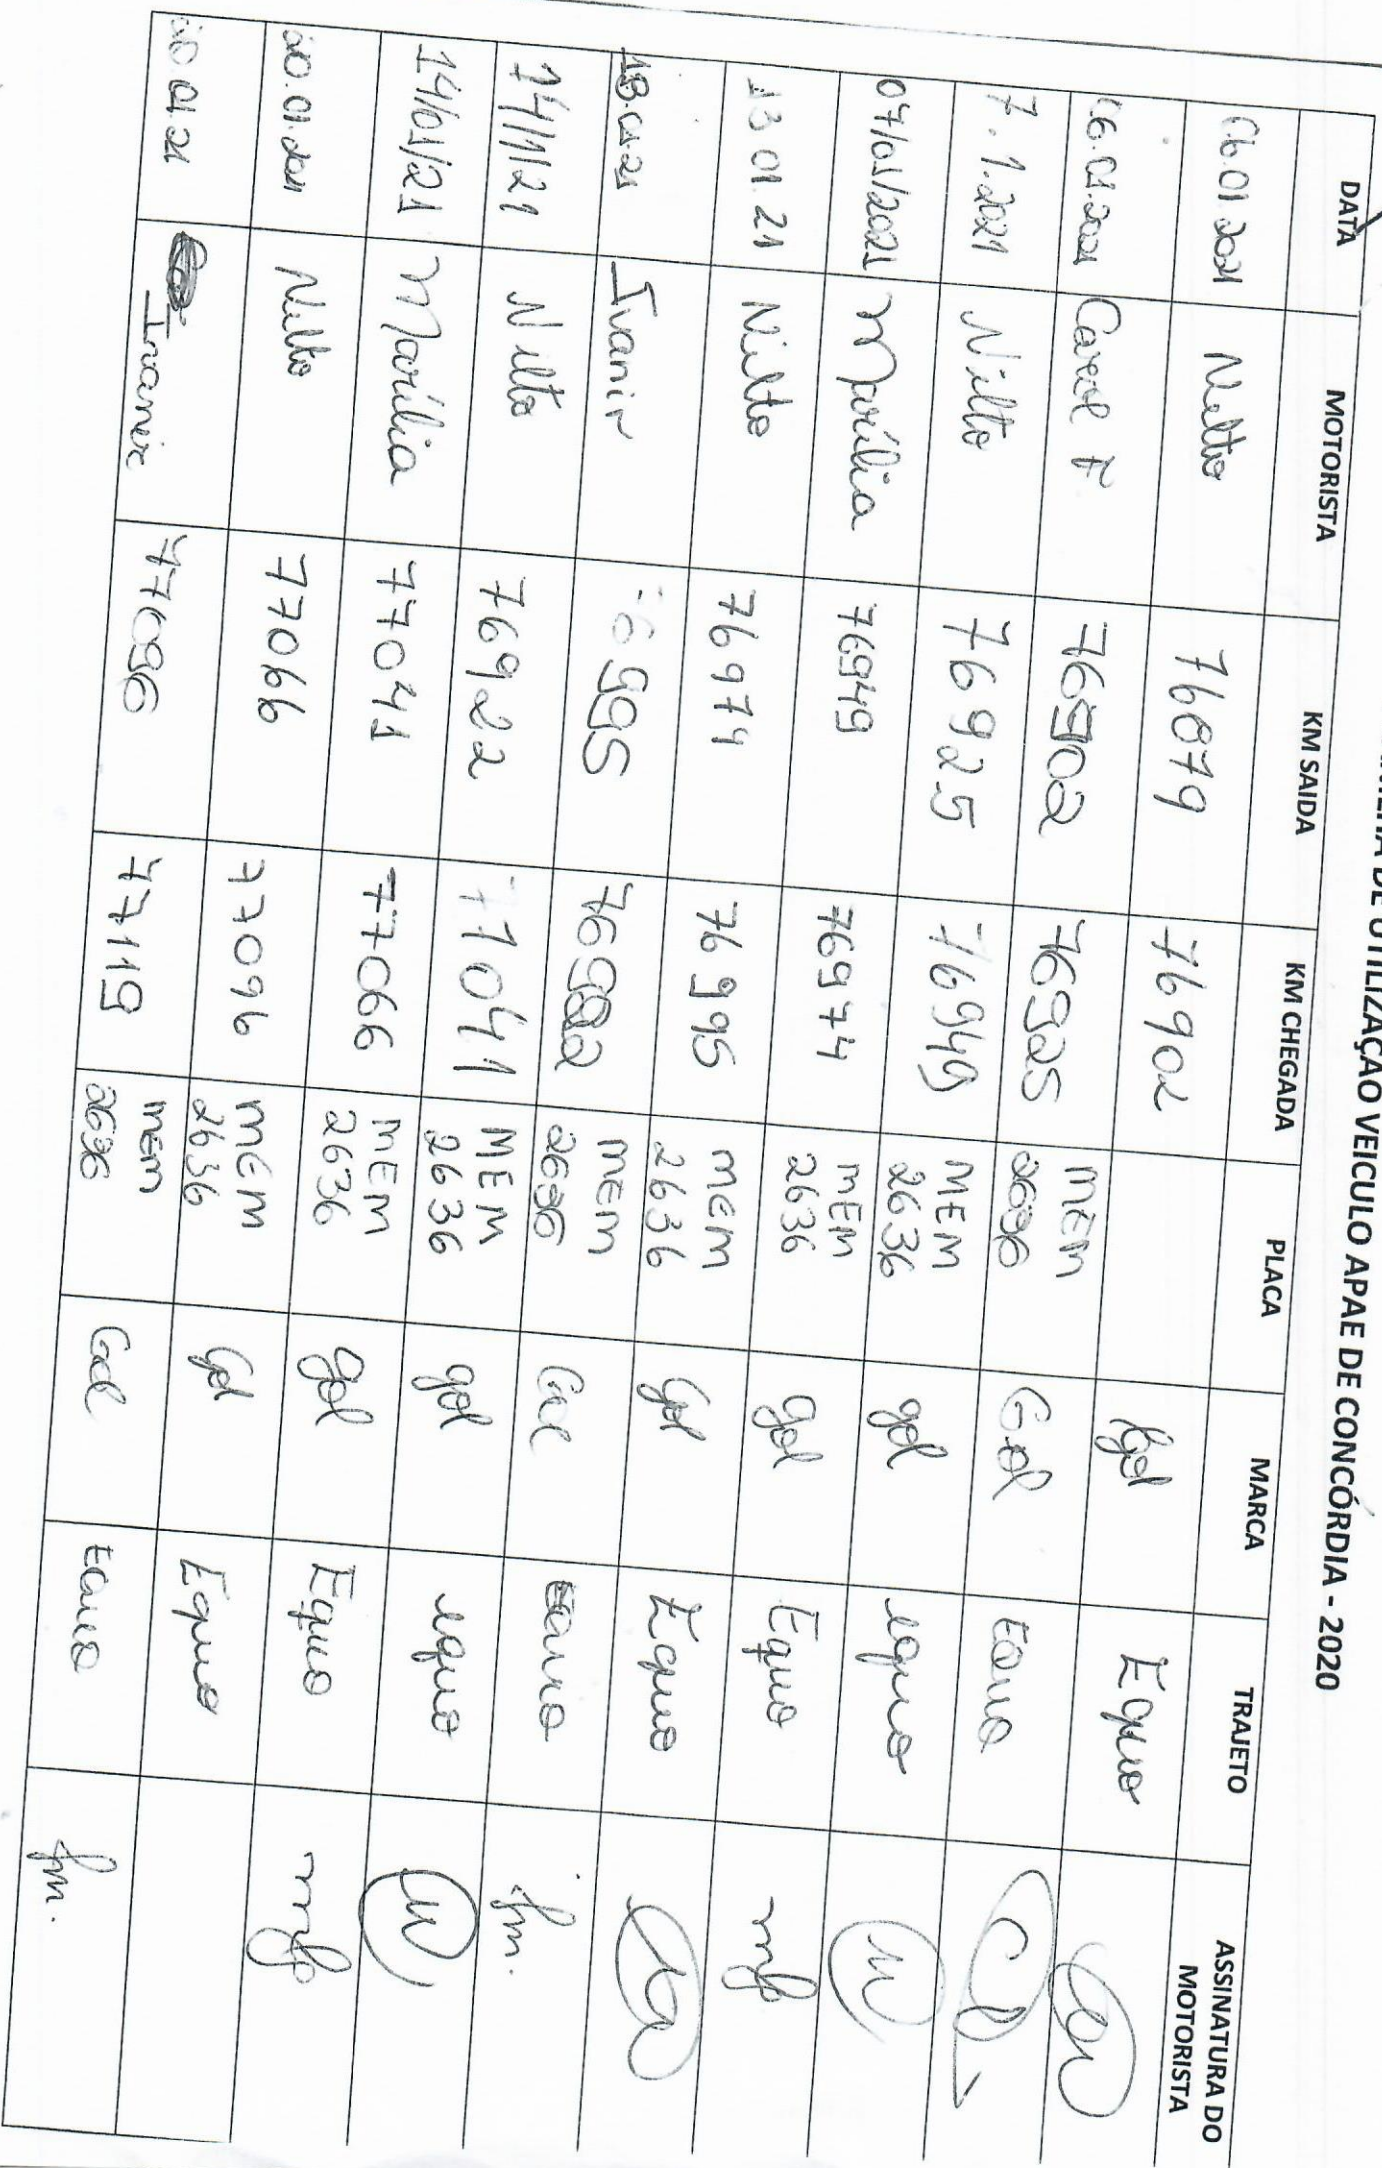 DE UTILIZAÇÃO VEICULO APAE DE CONCÓRDIA - 2020
DATA MOTORISTA KM SAIDA KM CHEGADA PLACA MARCA TRAJETO ASSINATURA DO MOTORISTA
06.01.2021 Nilto 76879 76902 Gol Equo
06.01.2021 Carol F 76902 76925 MEM 2636 Gol Equo
7.1.2021 Nilto 76925 76949 MEM 2636 gol equo
07/01/2021 Marília 76949 76974 MEM 2636 gol Equo mf
13.01.21 Nilto 76974 76995 MEM 2636 Gol Equo
13.01.21 Ivanir 76995 MEM 2636 Gol Equo fm.
14/1/21 Nilto 76922 77041 MEM 2636 gol equo
14/01/21 Marília 77041 77066 MEM 2636 gol Equo mf
20.01.2021 Nilto 77066 77096 MEM 2636 Gol Equo
20.01.21 Ivanir 77096 77119 MEM 2636 Gol Equo fm.